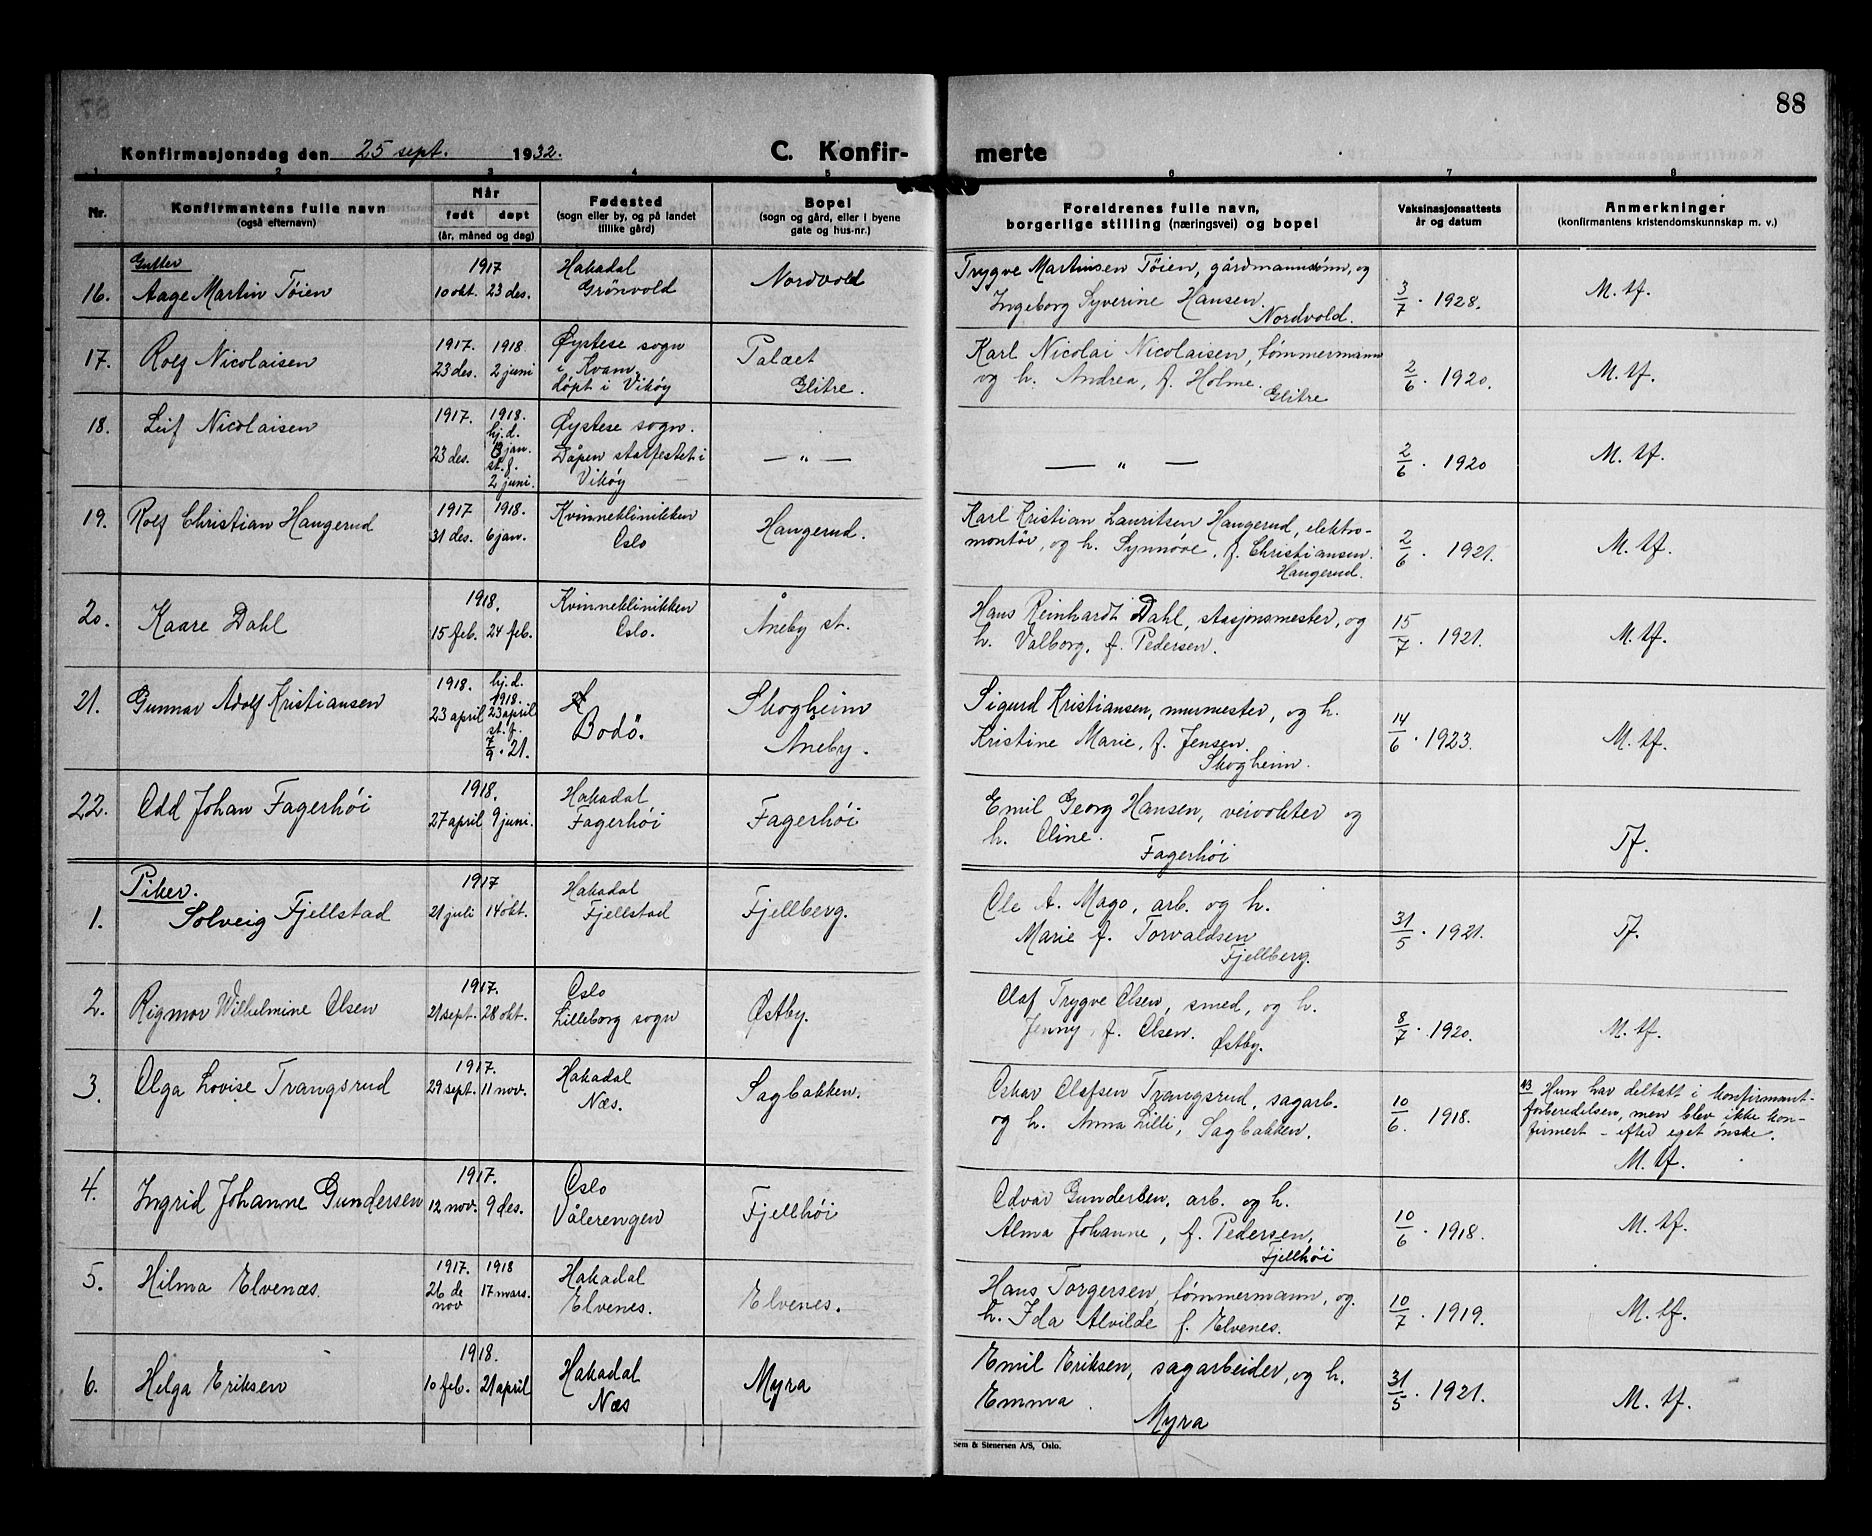 88
Konfirmasjonsdag den 25 sept. 1932.
C. Konfir- merte
1 2 3 4 5 6 7 8
Nr.
Konfirmantens fulle navn
(også efternavn)
Når
født døpt
(år, måned og dag)
Fødested
(sogn eller by, og på landet
tillike gård)
Bopel
(sogn og gård, eller i byene
gate og hus-nr.)
Foreldrenes fulle navn,
borgerlige stilling (næringsvei) og bopel
Vaksinasjonsattests
år og datum
Anmerkninger
(konfirmantens kristendomskunnskap m. v.)
Gutter
16. Aage Martin Töien
1917
10 okt. 23 des.
Hakadal
Grönvold
Nordvold
Trygve Martinsen Töien, gårdmannssønn, og
Ingeborg Syverine Hansen.
Nordvold.
3/7 . 1928.
M. tf.
17. Rolf Nicolaisen
1917. 1918
23 des. 2 juni
Øystese sogn
i Kvam.
döpt i Vikøy
Palæet
Glitre.
Karl Nicolai Nicolaisen, tømmermann
og h. Andrea, f. Holme.
Glitre
2/6 . 1920.
M. tf.
18. Leif Nicolaisen
1917. 1918.
hj. d.
23 des. 3 jan.
st. f.
2 juni.
Øystese sogn.
Dåpen statfestet i
Vikøy
— „ —
— „ —
2/6 . 1920
M. tf.
19. Rolf Christian Haugerud
1917 1918.
31 des. 6 jan.
Kvinneklinikken
Oslo
Haugerud.
Karl Kristian Lauritsen Haugerud, elektro-
montör, og h. Synnöve, f. Christiansen.
Haugerud.
2/6 . 1921.
M. tf.
20. Kaare Dahl
1918.
15 feb. 24 feb.
Kvinneklinikken
Oslo.
Åneby st.
Hans Reinhardt Dahl, stasjonsmester, og
h. Valborg, f. Pedersen.
15/7 . 1921.
M. tf.
21. Gunnar Adolf Kristiansen
1918. hj. d.
1918.
23 april 23 april
st. f.
7/9 . 21.
Bodö.
Skogheim
Åneby.
Sigurd Kristiansen, murmester, og h.
Kristine Marie, f. Jensen.
Skogheim.
14/6 . 1923.
M. tf.
22. Odd Johan Fagerhöi
1918.
27 april 9 juni.
Hakadal
Fagerhöi
Fagerhöi
Emil Georg Hansen, veivokter og
h. Oline.
Fagerhöi
Tf.
Piker.
1. Solveig Fjellstad
1917
21 juli 14 okt.
Hakadal
Fjellstad
Fjellberg.
Ole A. Mago, arb. og h.
Marie f. Torvaldsen
Fjellberg.
31/5 . 1921.
Tf.
2. Rigmor Wilhelmine Olsen
1917.
21 sept. 28 okt.
Oslo
Lilleborg sogn
Østby.
Olaf Trygve Olsen, smed, og h.
Jenny, f. Olsen. Østby.
8/7 . 1920.
M. tf.
3. Olga Lovise Trangsrud
1917.
29 sept. 11 nov.
Hakadal
Næs.
Sagbakken.
Oskar Olafsen Trangsrud, sagarb.
og h. Anna Lilli, Sagbakken.
10/6 . 1918.
NB Hun har deltatt i konfirmant-
forberedelsen, men blev ikke kon-
firmert – efter eget önske.
M. tf.
4. Ingrid Johanne Gundersen
1917.
12 nov. 9 des.
Oslo
Vålerengen
Fjellhöi
Odvar Gundersen, arb. og h.
Alma Johanne, f. Pedersen,
Fjellhöi
10/6 . 1918.
M. tf.
5. Hilma Elvenæs.
1917. 1918
26 de 17 mars.
nov
Hakadal
Elvenes.
Elvenes.
Hans Torgersen tömmermann, og
h. Ida Alvilde f. Elvenes.
10/7 . 1919.
M. tf.
6. Helga Eriksen
1918.
10 feb. 21 april
Hakadal
Næs
Myra
Emil Eriksen, sagarbeider, og h.
Emma.
Myra
31/5 . 1921.
M. tf.
Sem & Stenersen A/S, Oslo.